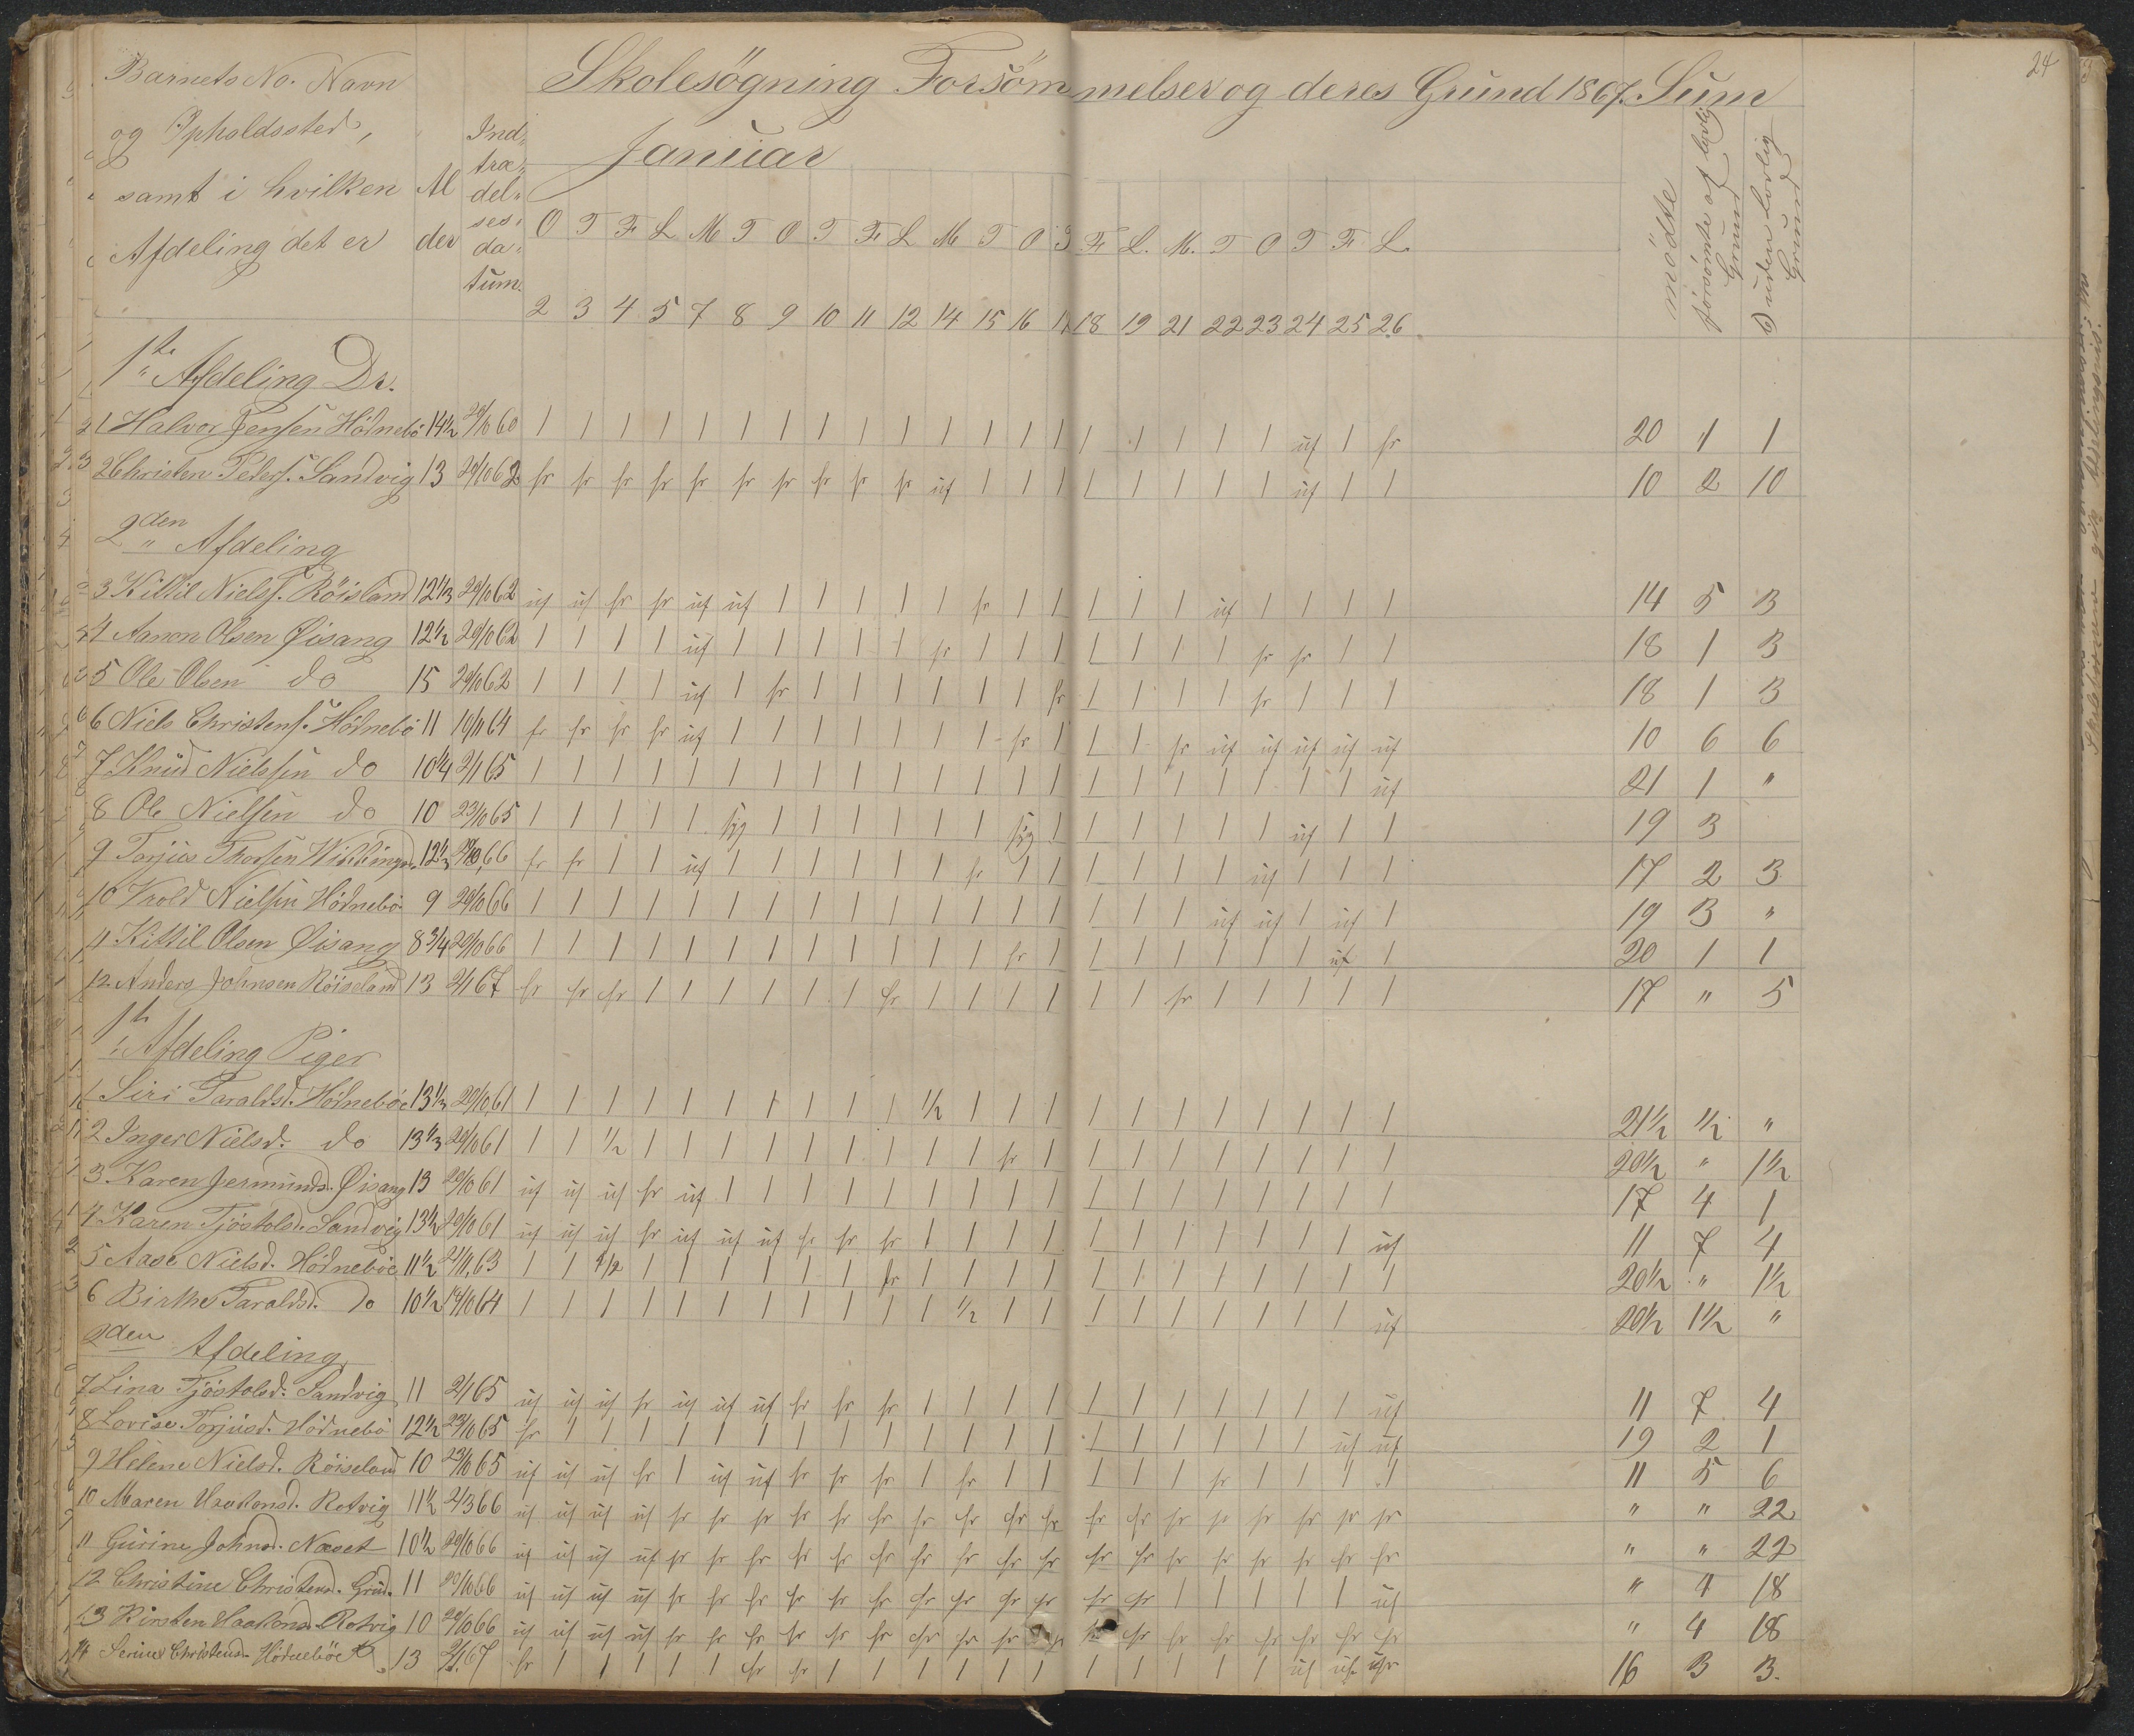 24
Skolesögning Forsömmelser og deres Grund 1867. Sum
Barnets No. Navn
og Opholdssted,
samt i hvilken
Afdeling det er
Al
der
Ind-
træ-
del-
ses-
da-
tum.
Januar
mödte
forsömte af lovlig Grund
D uden Lovlig Grund
O T F L M T O T F L M T O T F L. M. T O T F L.
2 3 4 5 7 8 9 10 11 12 14 15 16 17 18 19 21 22 23 24 25 26
1ste Afdeling Dr.
1 Halvor Jensen Hödnebö 14½ 29/10 60 1 1 1 1 1 1 1 1 1 1 1 1 1 1 1 1 1 1 1 uf 1 fr 20 1 1
2 Christen Peders. Sandvig 13 29/10 62 fr fr fr fr fr fr fr fr fr fr uf 1 1 1 1 1 1 1 1 uf 1 1 10 2 10
2den Afdeling
3 Kittil Niels. Röisland 12⅓ 29/10 62 uf uf fr fr uf uf 1 1 1 1 1 fr 1 1 1 1 1 uf 1 1 1 1 14 5 3
4 Aanon Olsen Öisang 12½ 29/10 62 1 1 1 1 uf 1 1 1 1 1 fr 1 1 1 1 1 1 1 fr fr 1 1 18 1 3
5 Ole Olsen do 15 29/10 62 1 1 1 1 uf 1 fr 1 1 1 1 1 1 fr 1 1 1 1 fr 1 1 1 18 1 3
6 Niels Christens. Hödnebö 11 10/11 64 fr fr fr fr uf 1 1 1 1 1 1 1 fr 1 1 1 fr uf uf uf uf uf 10 6 6
7 Knud Nielsen do 10¼ 2/1 65 1 1 1 1 1 1 1 1 1 1 1 1 1 1 1 1 1 1 1 1 1 uf 21 1 "
8 Ole Nielsen do 10 23/10 65 1 1 1 1 1 syg 1 1 1 1 1 1 syg 1 1 1 1 1 1 uf 1 1 19 3
9 Torjus 12⅓ 29/10 66 fr fr 1 1 uf 1 1 1 1 1 1 fr 1 1 1 1 1 1 uf 1 1 1 17 2 3
10 Vrold Nielsen Hödnebö 9 29/10 66 1 1 1 1 1 1 1 1 1 1 1 1 1 1 1 1 1 uf uf 1 uf 1 19 3 "
11 Kittil Olsen Öisang 8¾ 29/10 66 1 1 1 1 1 1 1 1 1 1 1 1 fr 1 1 1 1 1 1 1 uf 1 20 1 1
12 Anders Johnsen Röiseland 13 2/1 67 fr fr fr 1 1 1 1 1 1 fr 1 1 1 1 1 1 fr 1 1 1 1 1 17 " 5
1ste Afdeling Piger
1 Siri Taraldsd. Hödneböe 13⅓ 29/10 61 1 1 1 1 1 1 1 1 1 1 ½ 1 1 1 1 1 1 1 1 1 1 1 21½ ½ "
2 Inger Nielsd. do 13⅓ 29/10 61 1 1 ½ 1 1 1 1 1 1 1 1 1 fr 1 1 1 1 1 1 1 1 1 20½ " 1½
3 Karen Jermunds. Öisang 13 29/10 61 uf uf uf fr uf 1 1 1 1 1 1 1 1 1 1 1 1 1 1 1 1 1 17 4 1
4 Karen Tjöstolsd. Sandvig 13½ 29/10 61 uf uf uf fr uf uf uf fr fr fr 1 1 1 1 1 1 1 1 1 1 1 uf 11 7 4
5 Aase Nielsd. Hödneböe 11½ 21/11 63 1 1 ½ 1 1 1 1 1 1 fr 1 1 1 1 1 1 1 1 1 1 1 1 20½ " 1½
6 Birthe Taraldsd. do 10½ 14/10 64 1 1 1 1 1 1 1 1 1 1 1 ½ 1 1 1 1 1 1 1 1 1 uf 20½ 1½ "
2den Afdeling
7 Lina Tjöstolsd. Sandvig 11 2/1 65 uf uf uf fr uf uf uf fr fr fr 1 1 1 1 1 1 1 1 1 1 1 uf 11 7 4
8 Lovise Torjusd. Hödnebö 12½ 23/10 65 fr 1 1 1 1 1 1 1 1 1 1 1 1 1 1 1 1 1 1 1 uf uf 19 2 1
9 Helene Nielsd. Röiseland 10 23/10 65 uf uf uf fr 1 uf uf fr fr fr 1 fr 1 1 1 1 1 fr 1 1 1 1 11 5 6
10 Maren Haakonsd. Rotvig 11½ 2/3 66 uf uf uf uf fr fr fr fr fr fr fr fr fr fr fr fr fr fr fr fr fr fr " " 22
11 Gurine Johnsd. Naset 10½ 29/10 66 uf uf uf uf fr fr fr fr fr fr fr fr fr fr fr fr fr fr fr fr fr fr " " 22
12 Christine Christensd. 11 29/10 66 uf uf uf uf fr fr fr fr fr fr fr fr fr fr fr fr 1 1 1 1 1 uf " 4 18
13 Kirsten Haakonsd. Rotvig 10 29/10 66 uf uf uf uf fr fr fr fr fr fr fr fr fr fr fr fr fr fr fr fr fr fr " 4 18
14 Serine Christensd. Hödneböe 13 2/1 67 fr 1 1 1 1 1 fr fr 1 1 1 1 1 1 1 1 1 1 1 uf uf 16 3 3.